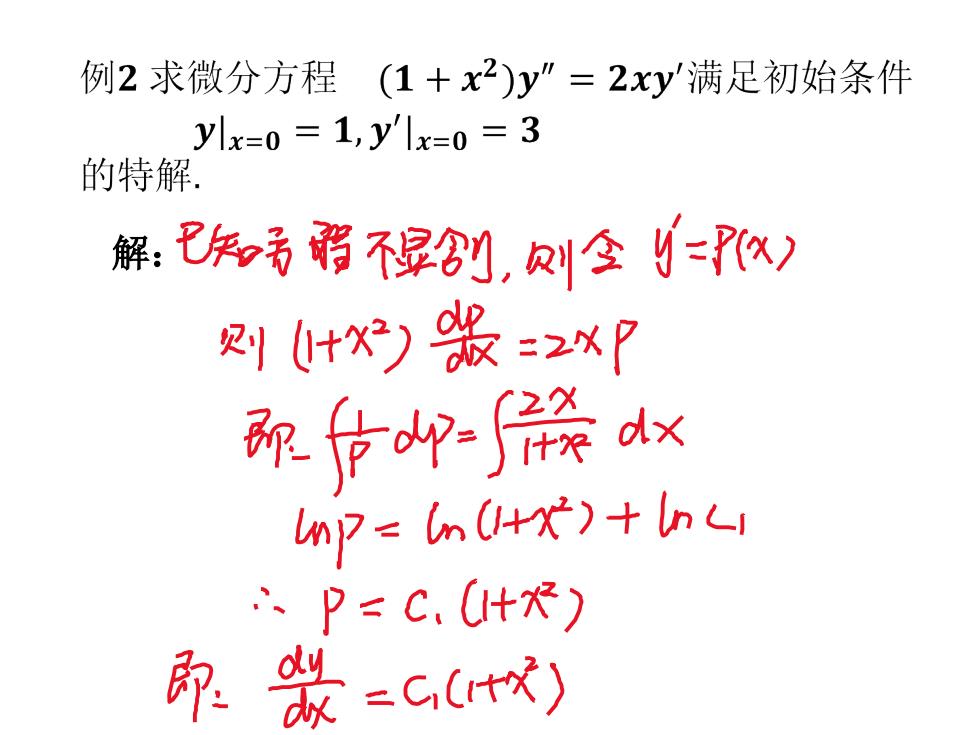 例2 求微分方程 (1 + x²)y″ = 2xy′满足初始条件
y|ₓ₌₀ = 1, y′|ₓ₌₀ = 3
的特解.
解: 已知方程不显含y, 则令 y′=P(x)
则 (1+x²) dp/dx = 2xP
即: ∫ 1/P dp = ∫ 2x/(1+x²) dx
lnp = ln(1+x²) + lnC₁
∴ P = C₁(1+x²)
即: dy/dx = C₁(1+x²)